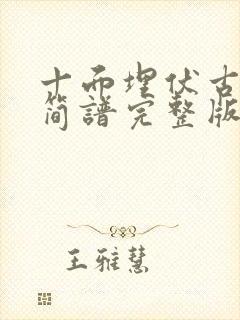 十而埋伏古
简谱完整版
王雅慧